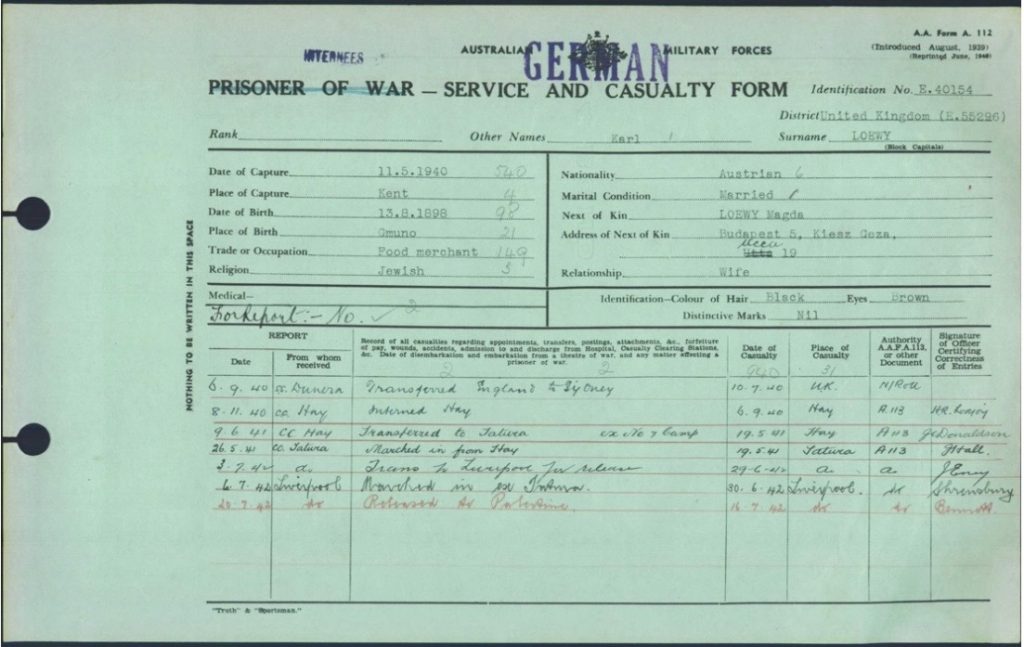 A.A. Form A. 112
(Introduced August, 1939)
(Reprinted June, 1940)
INTERNEES
AUSTRALIAN MILITARY FORCES
GERMAN
PRISONER OF WAR — SERVICE AND CASUALTY FORM
Identification No. E.40154
District United Kingdom (E.55296)
Rank Other Names Karl Surname LOEWY
(Block Capitals)
Date of Capture 11.5.1940 540
Place of Capture Kent 4
Date of Birth 13.8.1898 98
Place of Birth Gmuno 21
Trade or Occupation Food merchant 149
Religion Jewish 3
Nationality Austrian 6
Marital Condition Married
Next of Kin LOEWY Magda
Address of Next of Kin Budapest 5, Kiesz Geza,
Ucca
Utta 19
Relationship Wife
Medical—
For Report :- No. 2
Identification—Colour of Hair Black Eyes Brown
Distinctive Marks Nil
NOTHING TO BE WRITTEN IN THIS SPACE
REPORT
Date From whom received
Record of all casualties regarding appointments, transfers, postings, attachments, &c., forfeiture
of pay, wounds, accidents, admission to and discharge from Hospital, Casualty Clearing Stations,
&c. Date of disembarkation and embarkation from a theatre of war, and any matter affecting a
prisoner of war.
2 2
Date of Casualty 940
Place of Casualty 31
Authority A.A.F.A.113, or other Document
Signature of Officer Certifying Correctness of Entries
6.9.40 Dunera Transferred England to Sydney 10.7.40 UK. N/Roll
8.11.40 Hay Interned Hay 6.9.40 Hay A113
9.6.41 CC Hay Transferred to Tatura ex No 7 Camp 19.5.41 Hay A113 Donaldson
26.5.41 Tatura Marched in from Hay 19.5.41 Tatura A113 Hall
3.7.42 Trans to Liverpool for release 29-6-42
6.7.42 Liverpool Marched in ex Tatura. 30.6.42 Liverpool. do Shrewsbury
20.7.42 do Released to Palestine. 16.7.42 do do Bennett
"Truth" & "Sportsman."